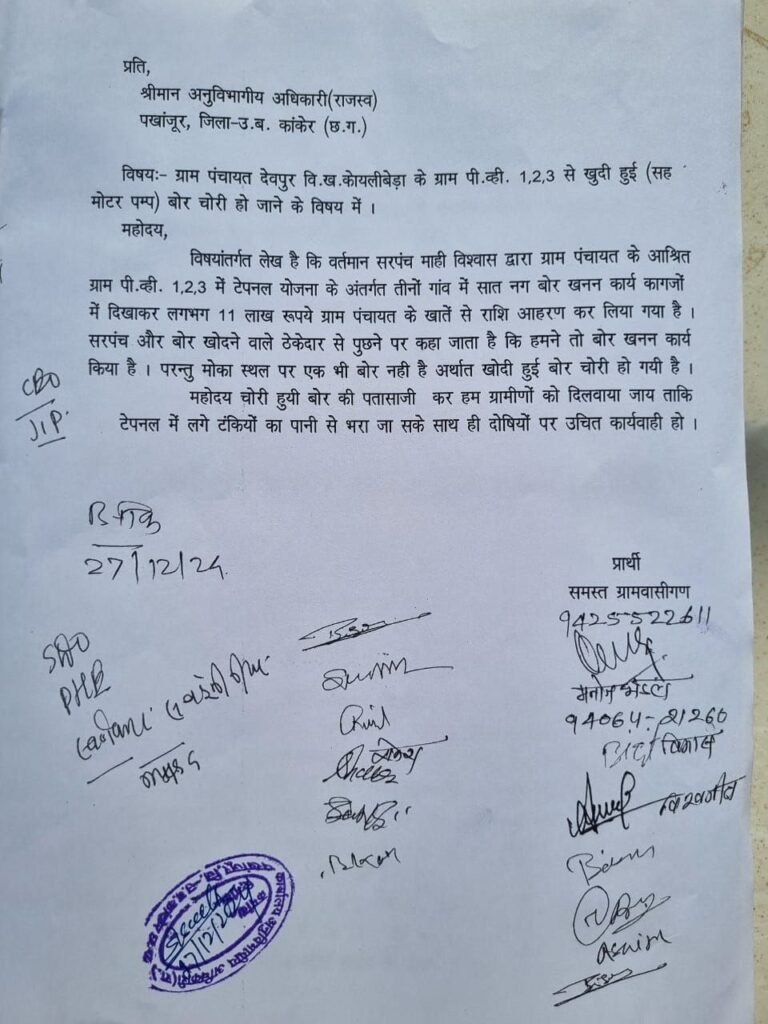 प्रति,
श्रीमान अनुविभागीय अधिकारी(राजस्व)
पखांजूर, जिला-उ.ब. कांकेर (छ.ग.)
विषयः- ग्राम पंचायत देवपुर वि.ख.केायलीबेड़ा के ग्राम पी.व्ही. 1,2,3 से खुदी हुई (सह
मोटर पम्प) बोर चोरी हो जाने के विषय में ।
महोदय,
विषयांतर्गत लेख है कि वर्तमान सरपंच माही विश्वास द्वारा ग्राम पंचायत के आश्रित
ग्राम पी.व्ही. 1,2,3 में टेपनल योजना के अंतर्गत तीनों गांव में सात नग बोर खनन कार्य कागजों
में दिखाकर लगभग 11 लाख रूपये ग्राम पंचायत के खातें से राशि आहरण कर लिया गया है ।
सरपंच और बोर खोदने वाले ठेकेदार से पुछने पर कहा जाता है कि हमने तो बोर खनन कार्य
किया है । परन्तु मोका स्थल पर एक भी बोर नही है अर्थात खोदी हुई बोर चोरी हो गयी है ।
महोदय चोरी हुयी बोर की पतासाजी कर हम ग्रामीणों को दिलवाया जाय ताकि
टेपनल में लगे टंकियों का पानी से भरा जा सके साथ ही दोषियों पर उचित कार्यवाही हो ।
CEO
27/12/24
प्रार्थी
समस्त ग्रामवासीगण
9425522611
मनोज मंडल
94064-21260
SDO
PHE
Ashim